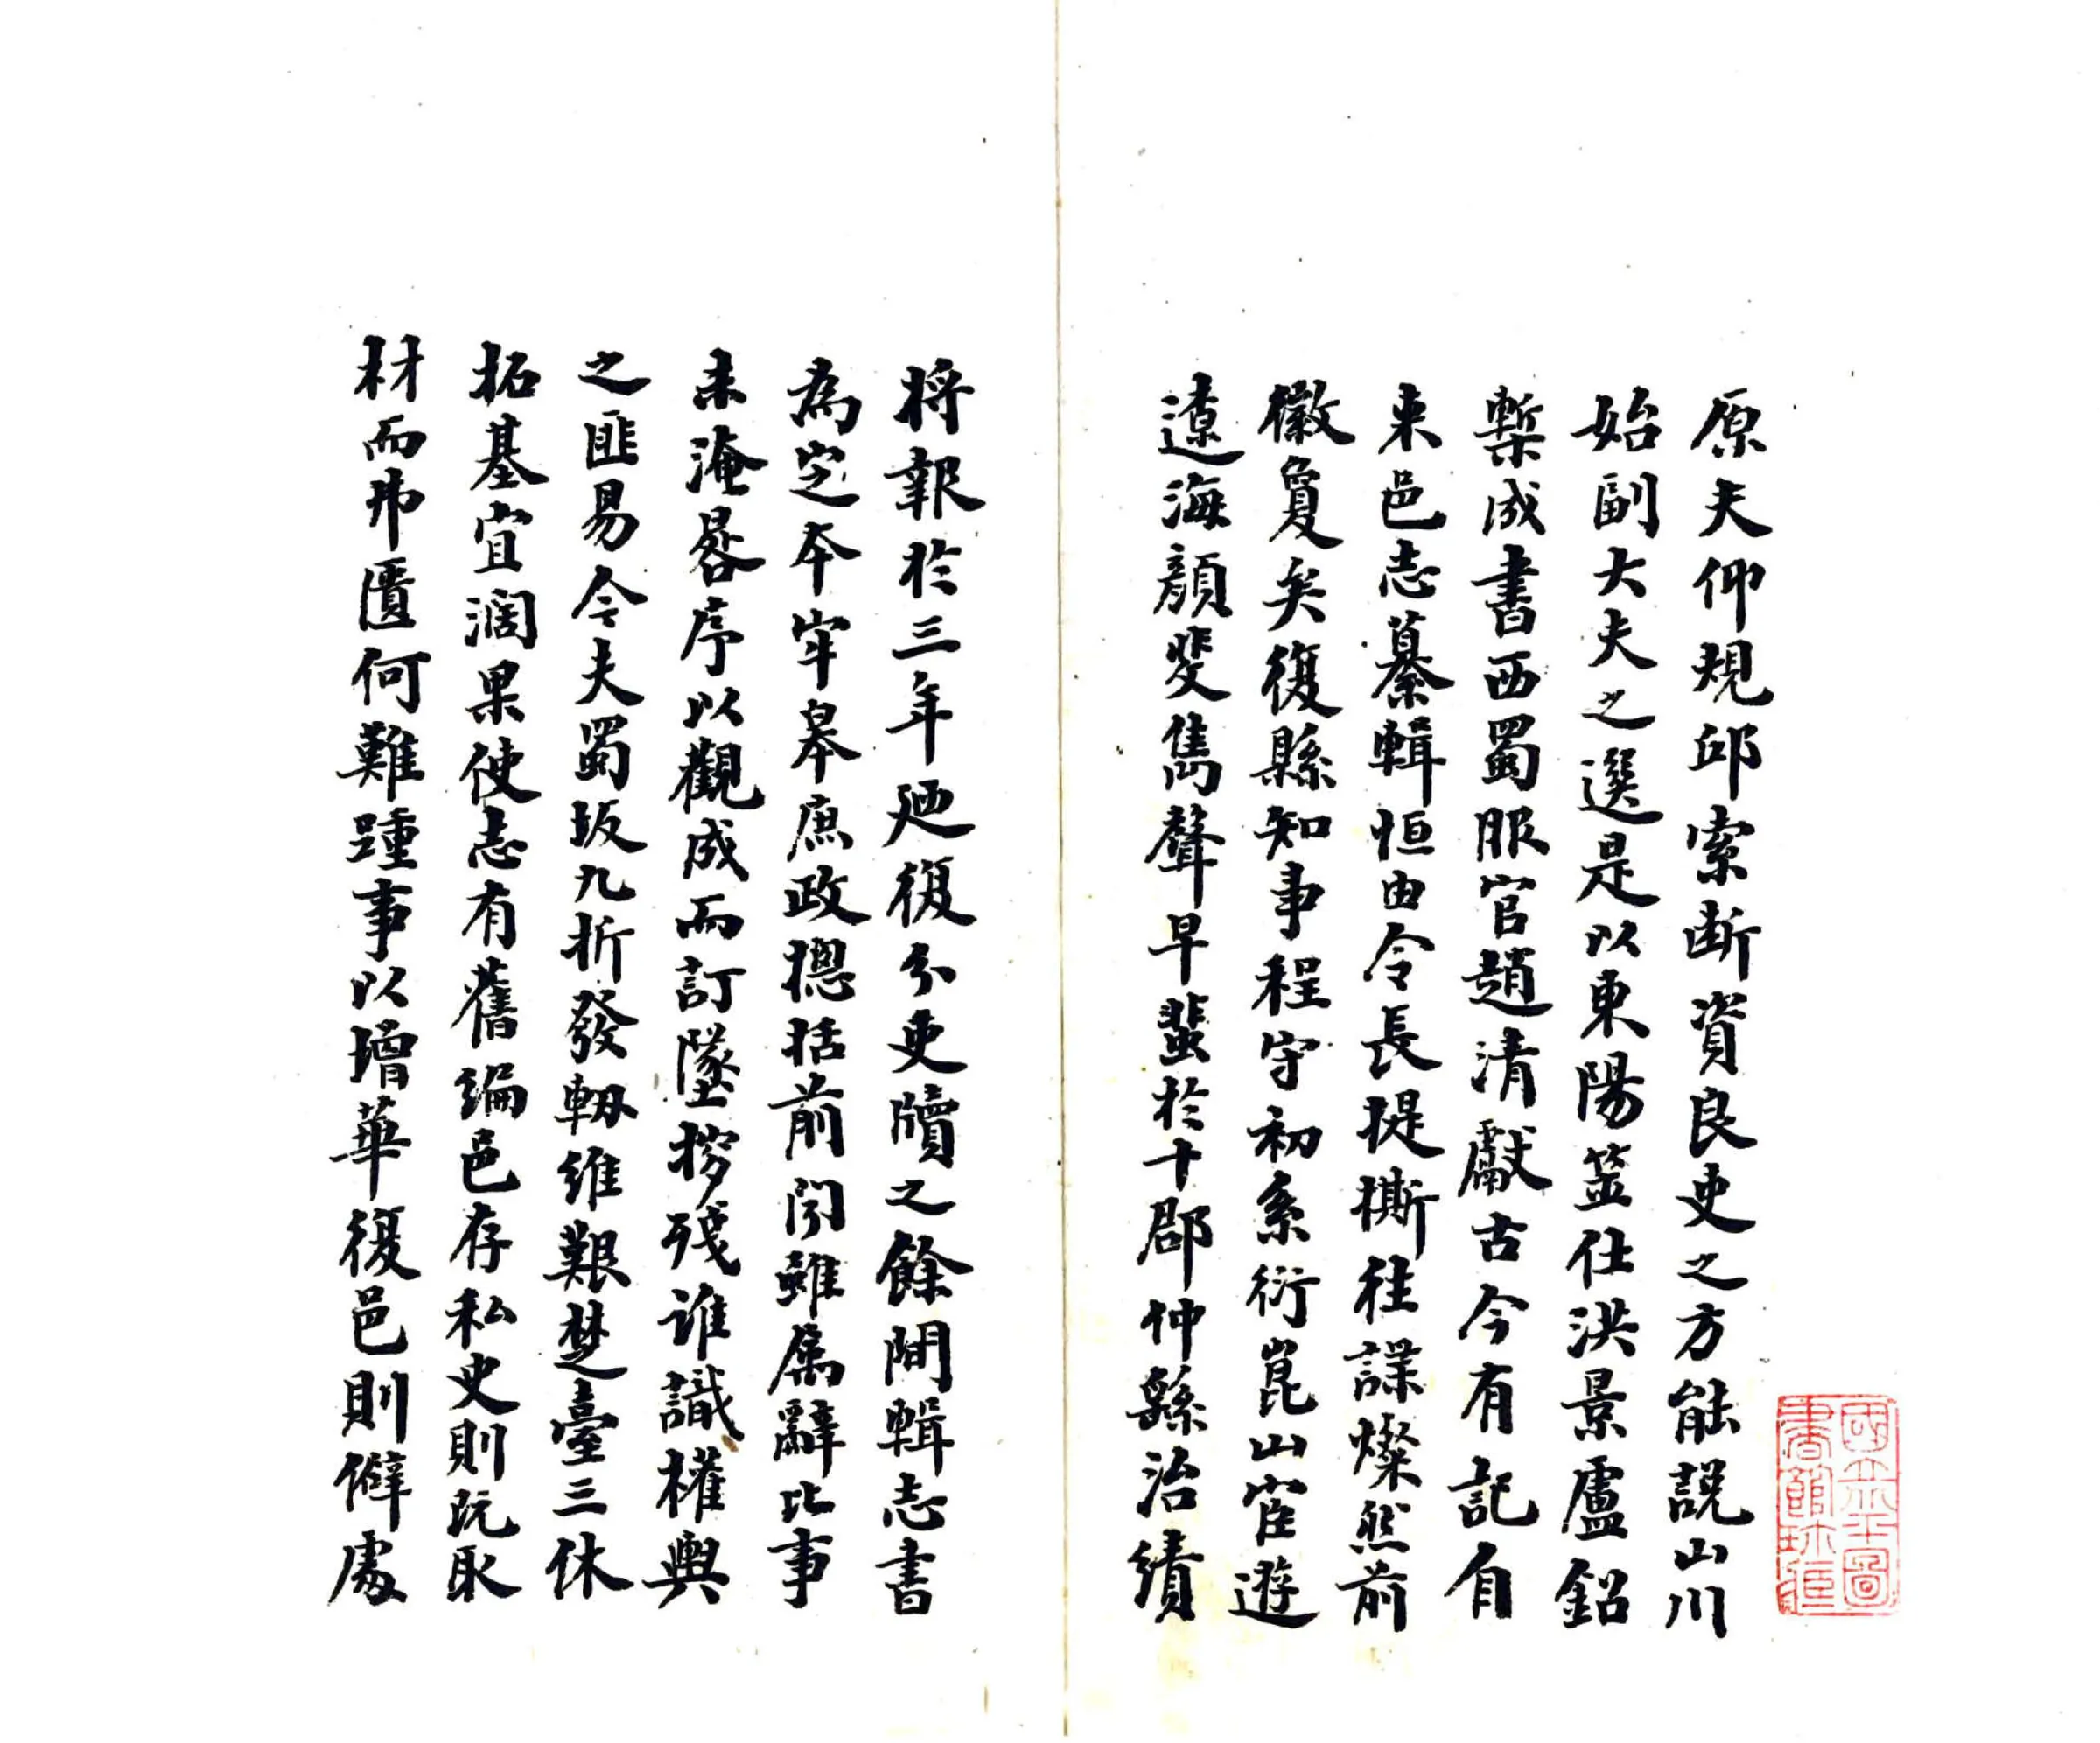 原夫仰規邱索斷資良吏之方能說山川
始副大夫之選是以東陽筮仕洪景盧鉛
槧成書西蜀服官趙清獻古今有記自
來邑志纂輯恒由令長提撕往諜燦然前
徽敻矣復縣知事程守初系衍崑山宦遊
遼海顏斐雋聲早蜚於十郡仲繇治績
將報於三年廼復分吏牘之餘閒輯志書
為定本牢皋庶政摠括前聞雖属辭比事
未淹晷序以觀成而訂墜捞殘谁識權輿
之匪易今夫蜀坂九折發軔維艱楚臺三休
拓基宜濶果使志有舊編邑存私史則玩取
材而弗匱何難踵事以增華復邑則僻處
國立北平圖
書館珍藏